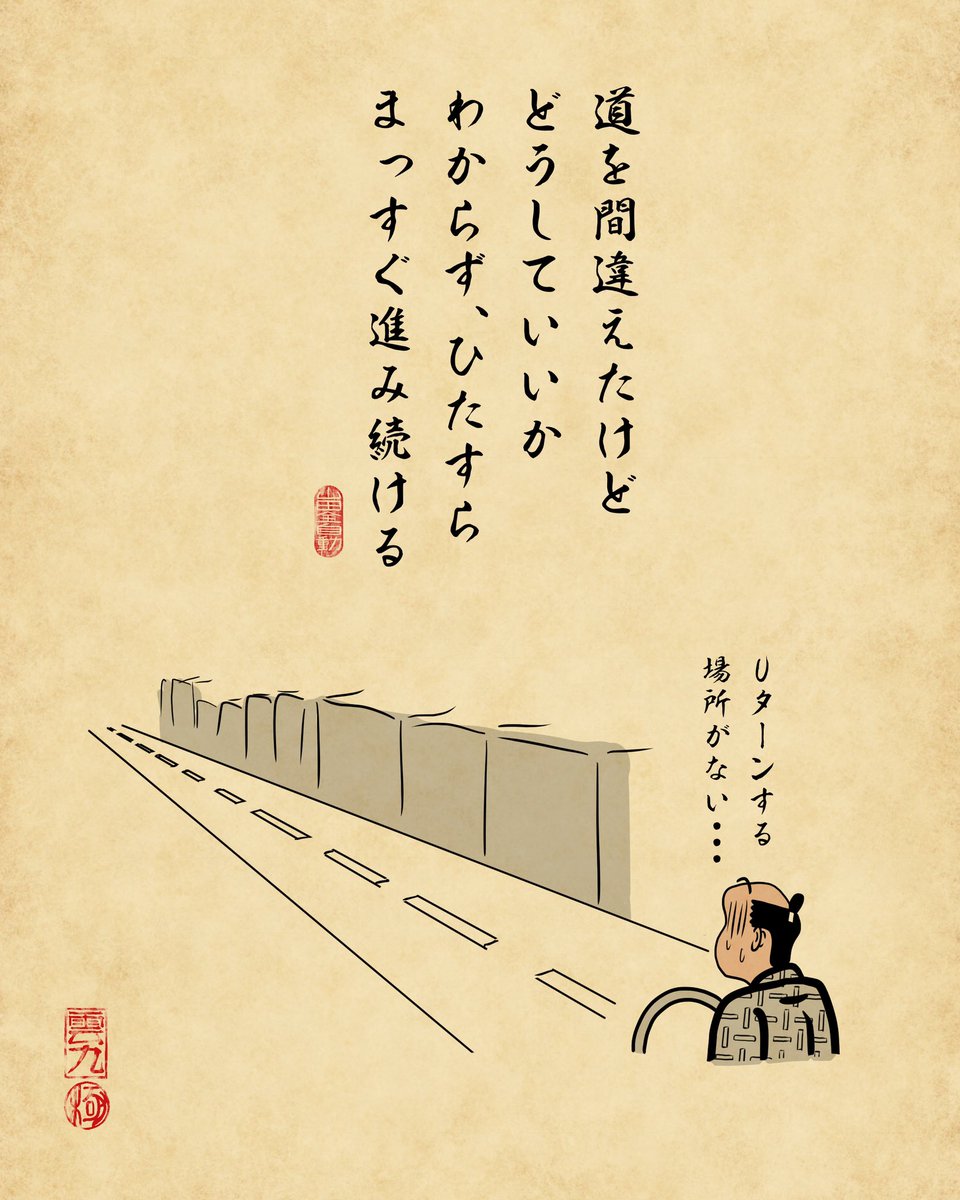 道を間違えたけど
どうしていいか
わからず、ひたすら
まっすぐ進み続ける
Uターンする
場所がない・・・